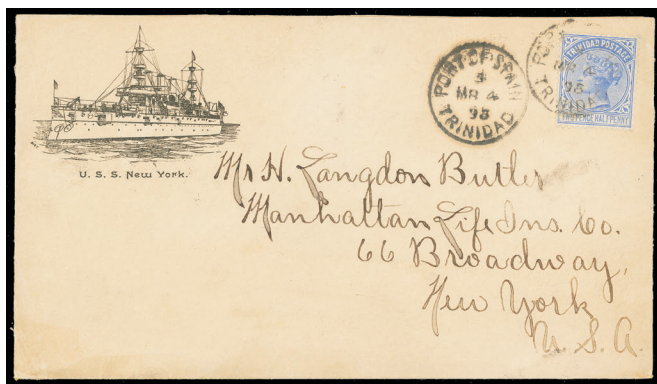 U. S. S. New York.
PORT-OF-SPAIN
3
MR 4
98
TRINIDAD
PORT
MR 4
98
TRINIDA
TRINIDAD POSTAGE
TWO PENCE HALF PENNY
Mr H. Langdon Butler
Manhattan Life Ins. Co.
66 Broadway,
New York
U. S. A.